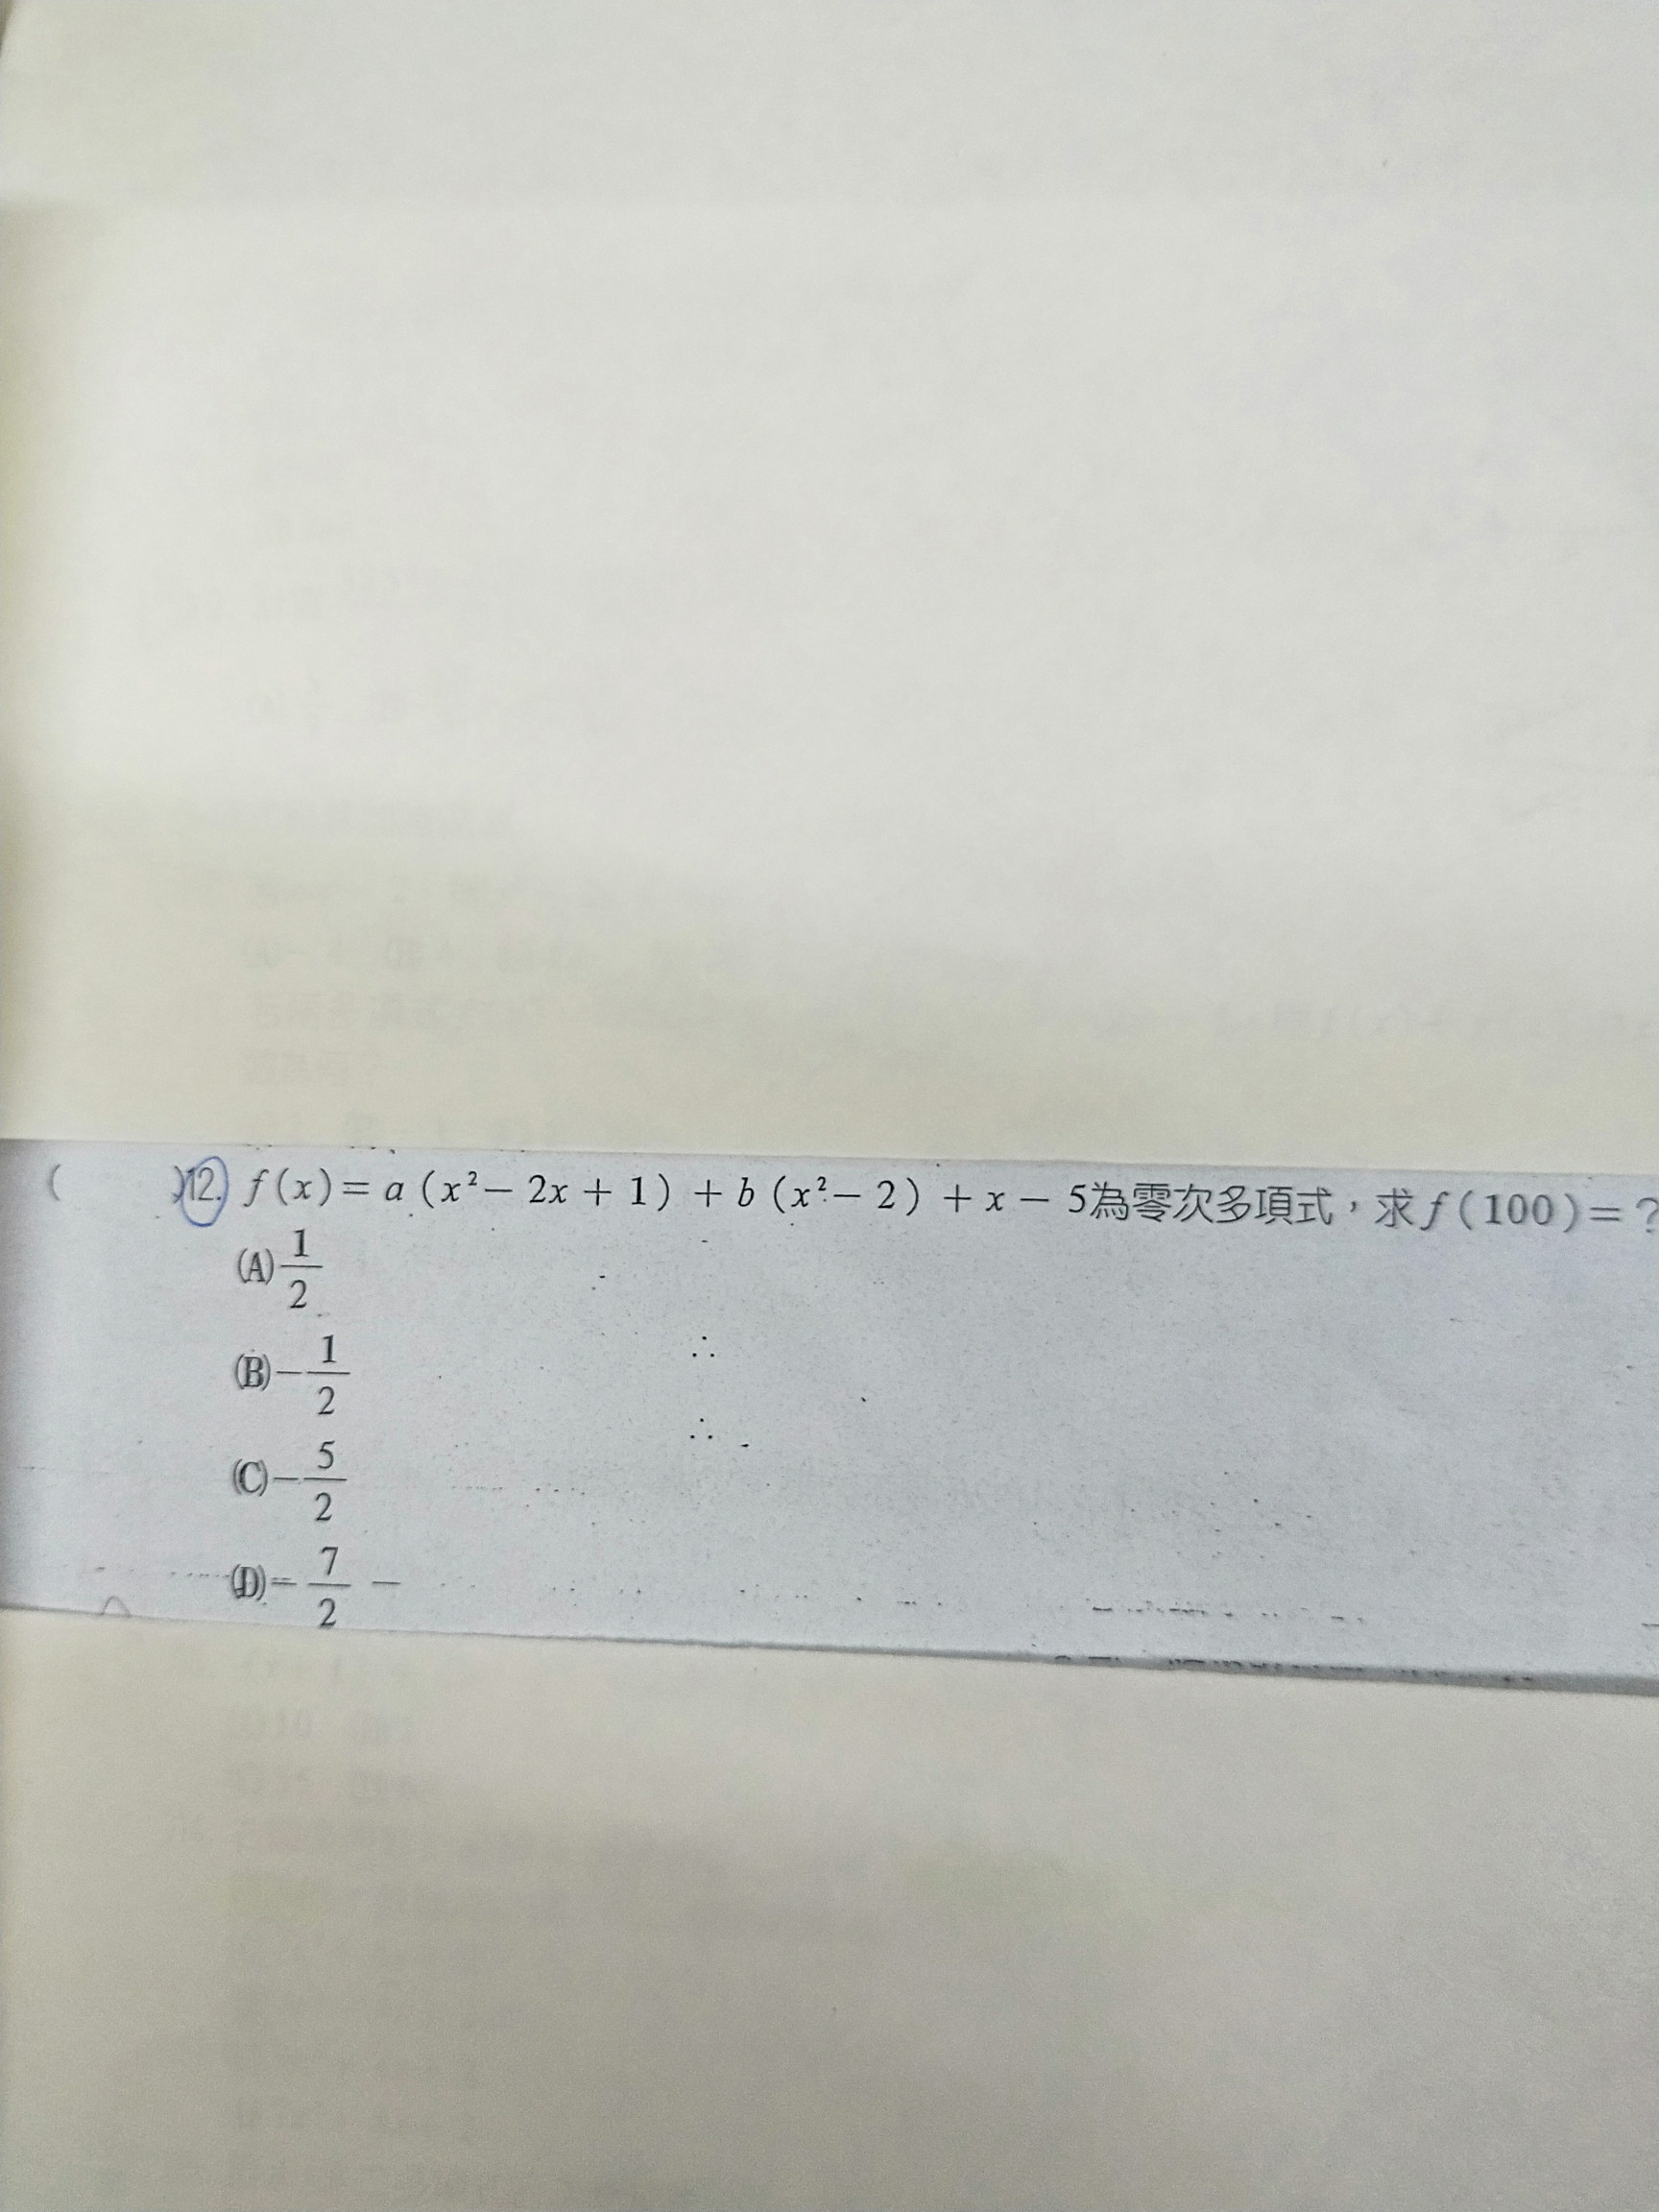 ( )12. f(x)= a (x²− 2x + 1) + b (x²− 2) + x − 5為零次多項式，求f(100)=?
(A) 1/2
(B)− 1/2
(C)− 5/2
(D)− 7/2